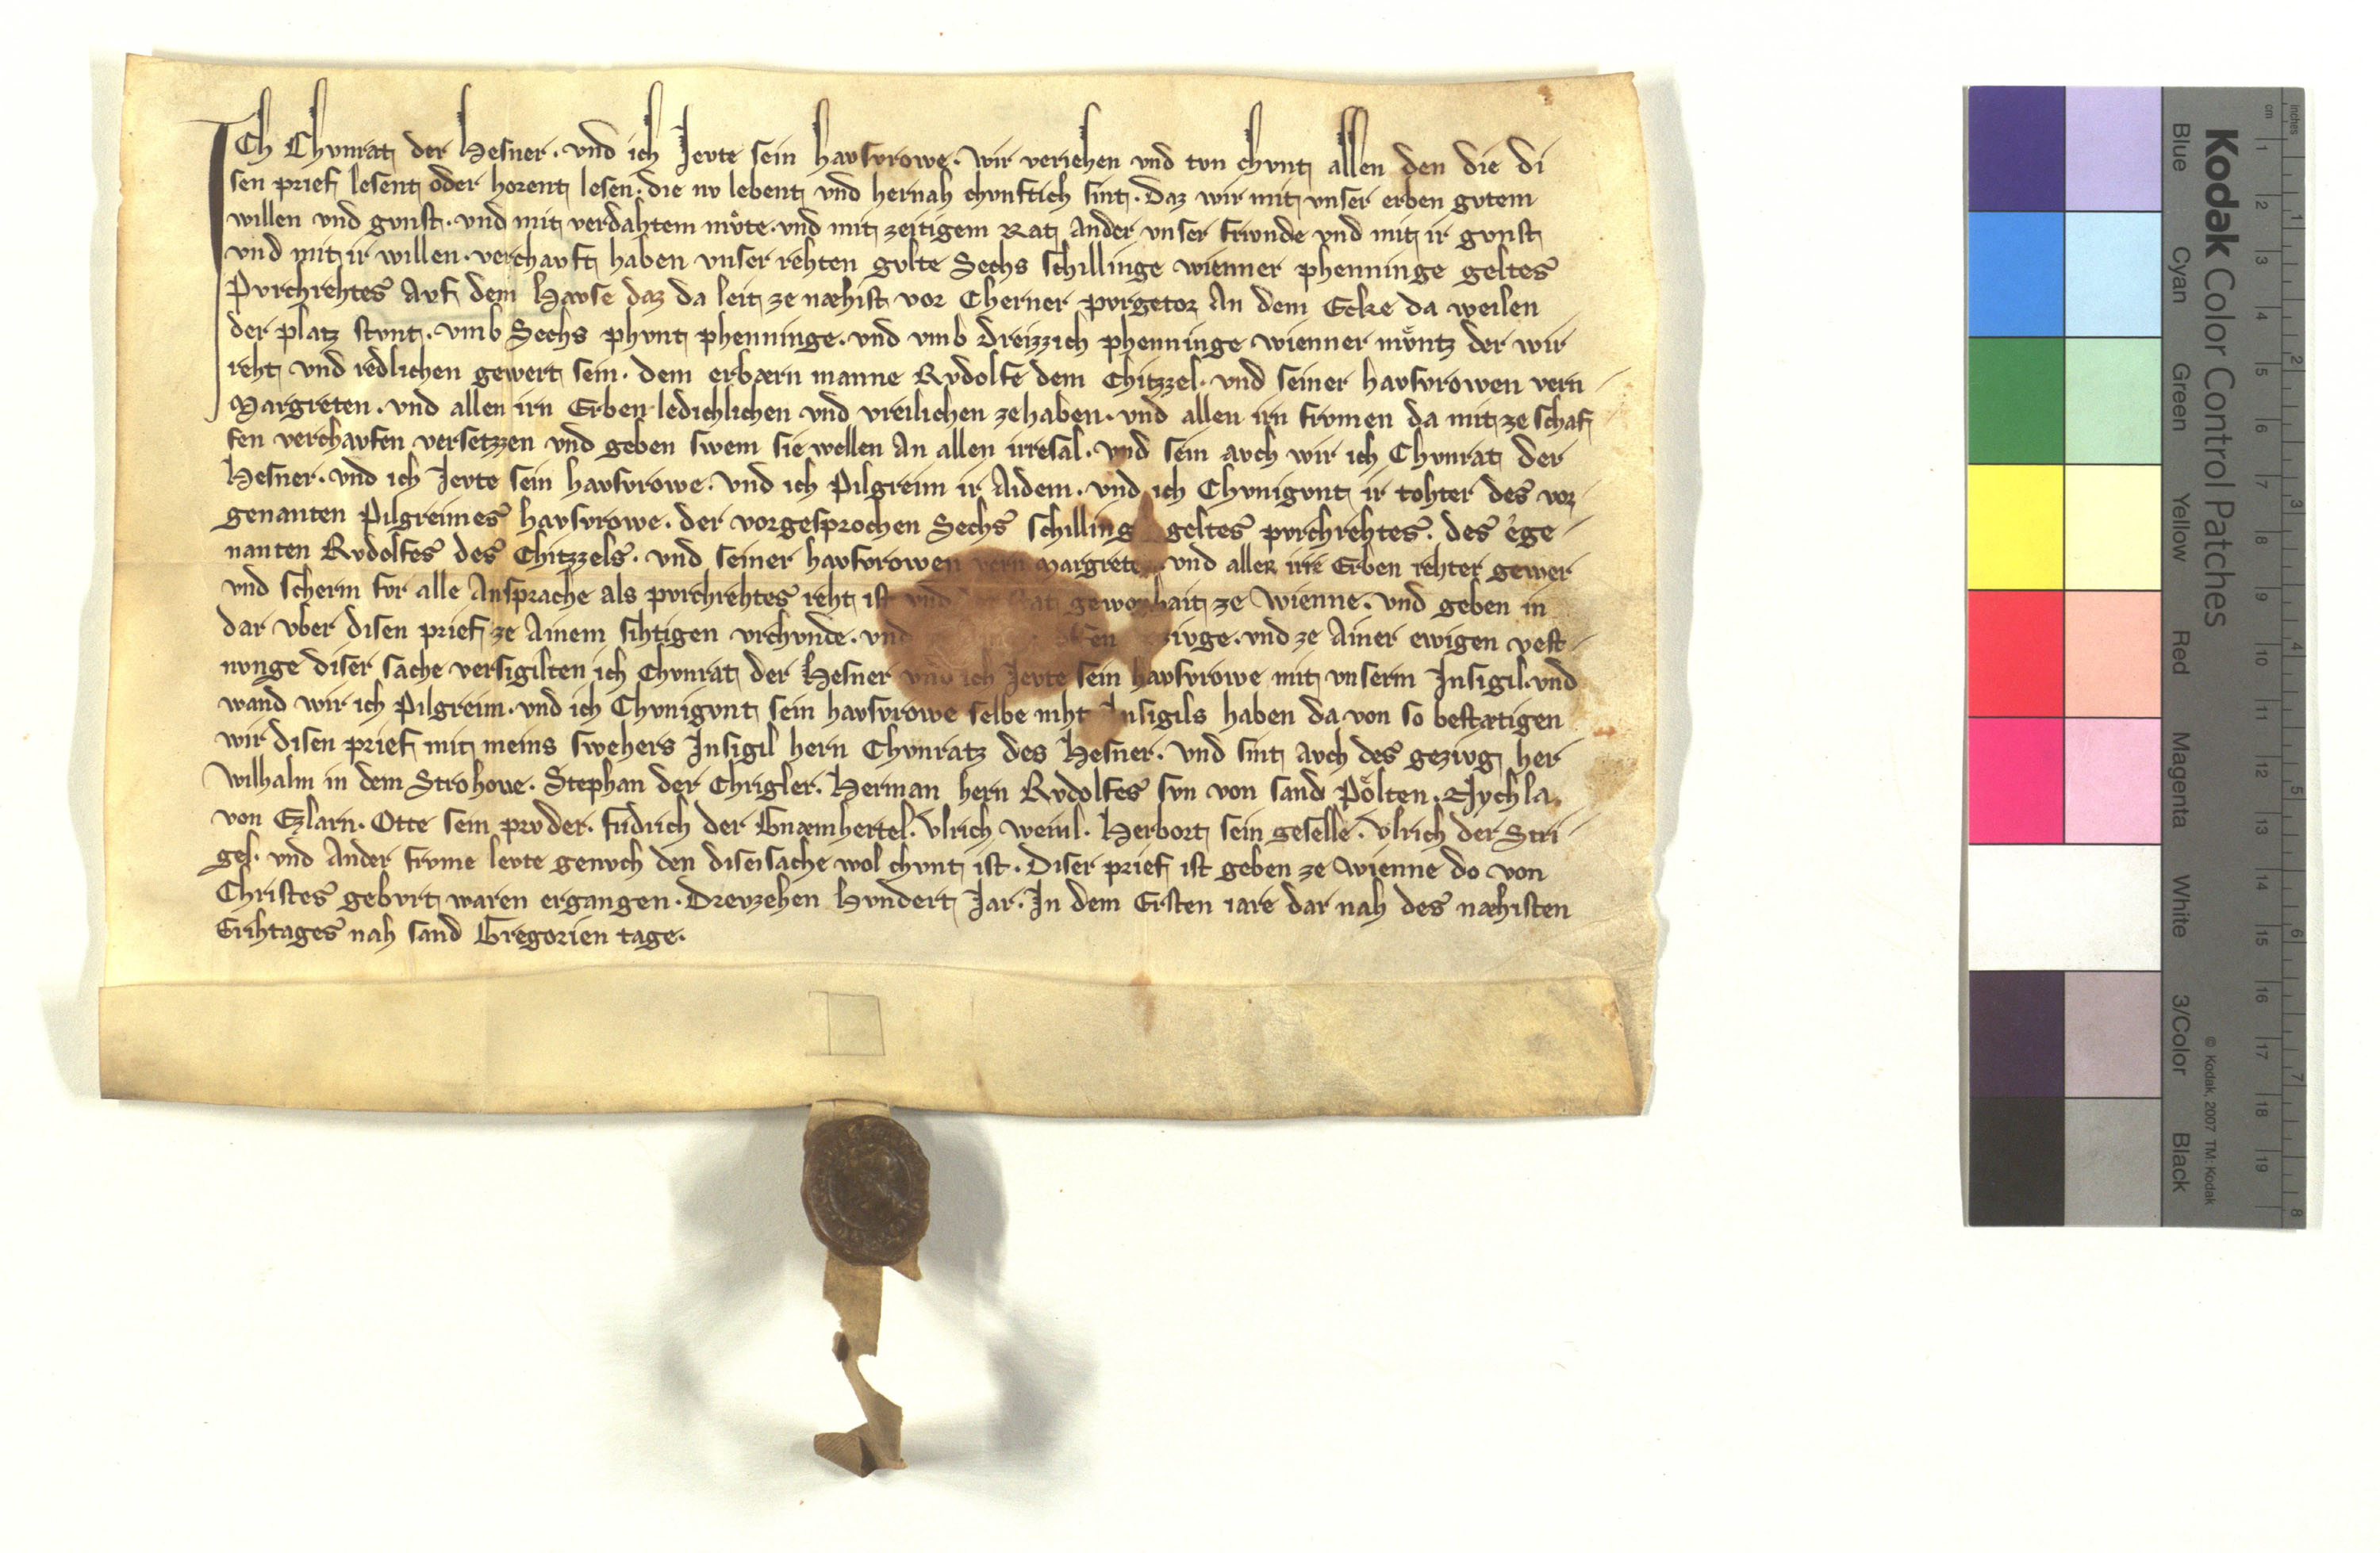 ICh Chvnrat der Hesner. vnd ich Jevte sein havsvrowe. wir veriehen vnd tvn chvnt allen den die di
sen prief lesent oder horent lesen. die nv lebent vnd hernah chvnftich sint. Daz wir mit vnser erben gvtem
willen vnd gvnst. vnd mit verdahtem mvͦte. vnd mit zeitigem Rat ander vnser frivnde vnd mit ir gvnst
vnd mit ir willen. verchavft haben vnser rehten gvlte Sechs schillinge wienner phenninge geltes
Pvrchrehtes Avf dem Havse daz da leit ze næhist vor Cherner pvrgetor An dem Ecke da weilen
der platz stvnt. vmb Sechs phvnt phenninge. vnd vmb Dreizzich phenninge wienner mvͤntz der wir
reht vnd redlichen gewert sein. dem erbærn manne Rvdolfe dem Chitzzel. vnd seiner havsvrowen vern
Margreten. vnd allen irn Erben ledichlichen vnd vreilichen ze haben. vnd allen irn frvmen da mit ze schaf
fen verchavfen versetzzen vnd geben swem sie wellen An allen irresal. vnd sein avch wir ich Chvnrat der
Hesner. vnd ich Jevte sein havsvrowe. vnd ich Pilgreim ir Aidem. vnd ich Chvnigvnt ir tohter des vor
genanten Pilgreimes havsvrowe. der vorgesprochen Sechs schilling geltes pvrchrehtes. des ege
nanten Rvdolfes des Chitzzels. vnd seiner havsvrowen vern Margreten vnd aller irre Erben rehter gewer
vnd scherm fvr alle Ansprache als pvrchrehtes reht ist vnd der stat gewonhait ze Wienne. vnd geben in
dar vber disen prief ze Ainem sihtigen vrchvnde. vnd offen zivge. vnd ze Ainer ewigen vest
nvnge diser sache versigilten ich Chvnrat der Hesner vnd ich Jevte sein havsvrowe mit vnserm Insigil. vnd
wand wir ich Pilgreim. vnd ich Chvnigvnt sein havsvrowe selbe niht Insigils haben da von so bestætigen
wir disen prief mit meins swehers Insigil hern Chvnratz des Hesner. vnd sint avch des gezivg her
Wilhalm in dem Strohove. Stephan der Chrigler. Herman hern Rvdolfes svn von sand Poͤlten. Nychla
von Ezlarn. Otte sein prvder. fridrich der Gnæmhertel. Vlrich weinl. Herbort sein geselle. Vlrich der Stri
gel. vnd Ander frvme levte genvch den diser sache wol chvnt ist. Diser prief ist geben ze wienne do von
Christes gebvrt waren ergangen. Drevzehen Hvndert Jar. In dem Ersten iare dar nah des næhisten
Erihtages nah sand Gregorien tage.
Kodak Color Control Patches
© Kodak, 2007 TM: Kodak
Blue
Cyan
Green
Yellow
Red
Magenta
White
3/Color
Black
inches
cm
1
2
3
4
5
6
7
8
9
10
11
12
13
14
15
16
17
18
19
1
2
3
4
5
6
7
8